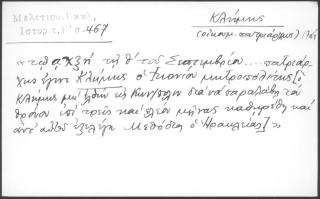 Μελετίου.Εκκλ,
Ιστορ.τ,Γ' σ.467
Κλήμης
(οἰκουμ. πατριάρχης)
«τῷ αχξή τῇ θ' τοῦ Σεπτεμβρίου.... πατριάρ-
χης ἔγινε Κλήμης ὁ Ἰκονίου μητροπολίτης [ὁ
Κλήμης μὴ ἐλθὼν εἰς Κων/πολιν διὰ νὰ παραλάβῃ τὸν
θρόνον ἐπὶ τρεῖς καὶ πλέον μῆνας καθῃρέθη καὶ
ἀντ' αὐτοῦ ἐξελέγη Μεθόδιος ὁ Ἡρακλείας]»